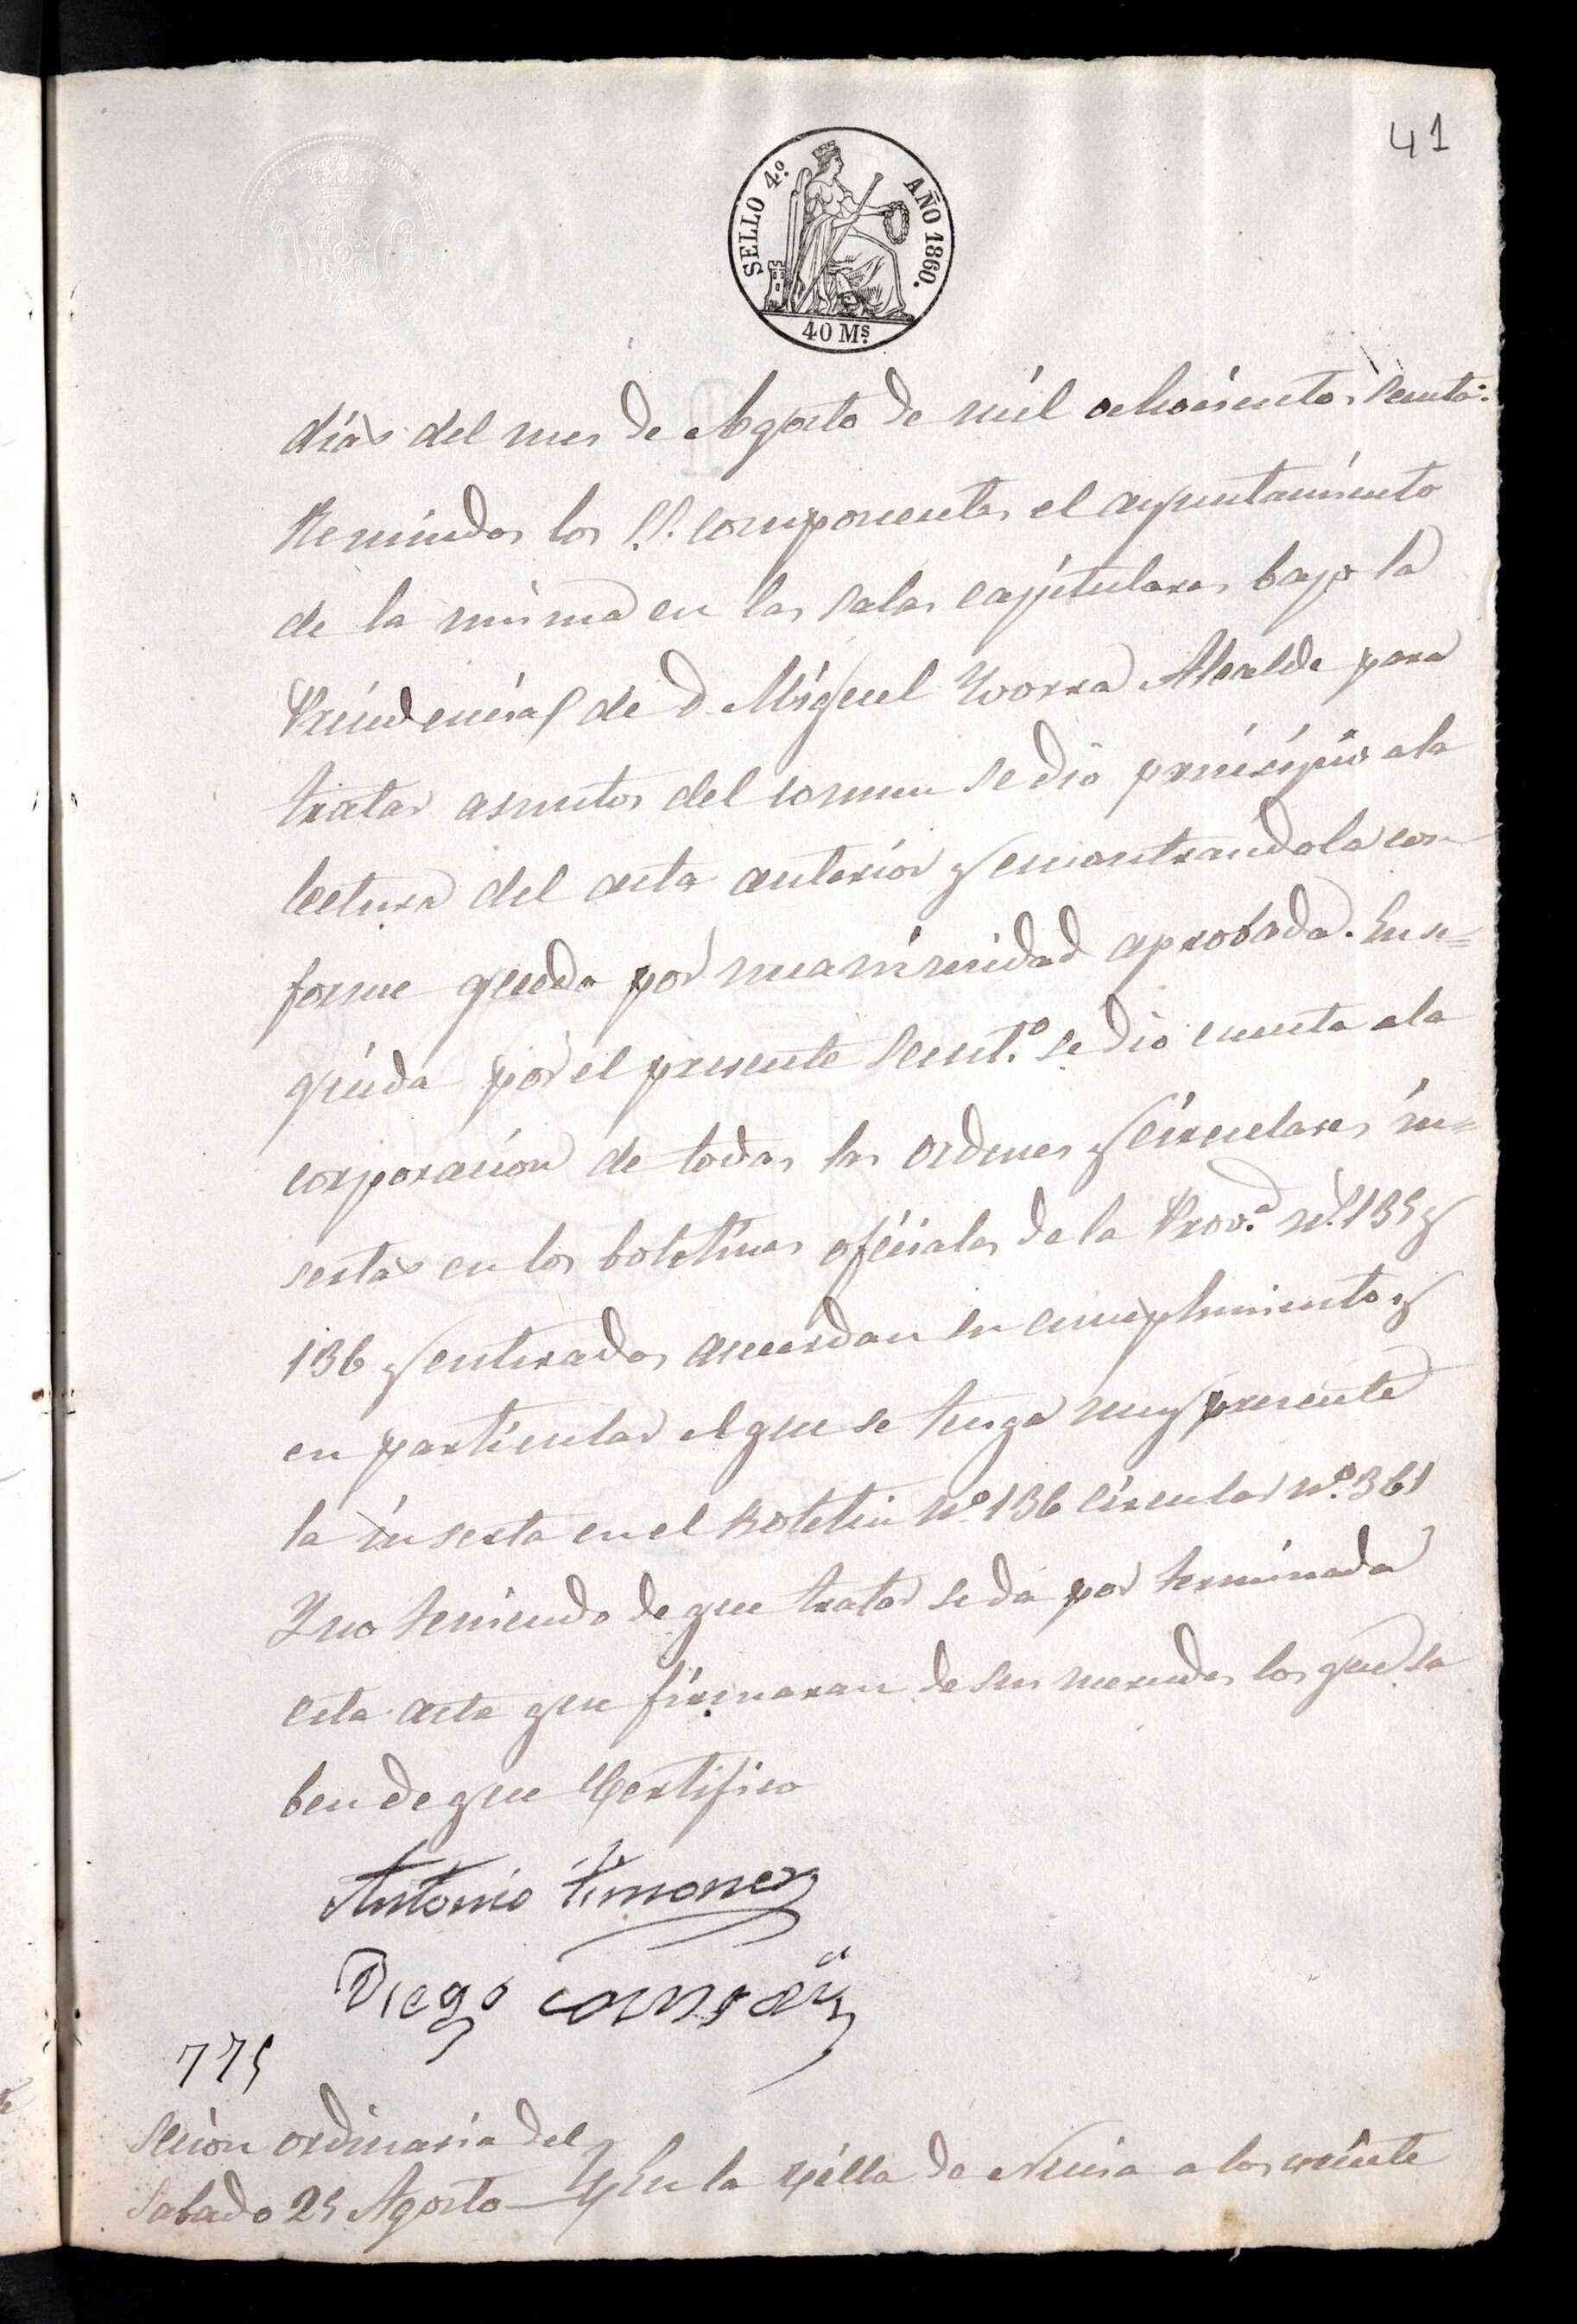 41
SELLO 4.º AÑO 1860.
40 Ms.
días del mes de Agosto de mil ochocientos sesenta:
Reunidos los S.S. componentes el ayuntamiento
de la misma en las salas capitulares bajo la
Presidencia de D. Miguel Yvorra Alcalde para
tratar asuntos del comun se dio principio a la
lectura del acta anterior y encontrandola con-
forme queda por unanimidad aprobada. En se=
guida por el presente Secret.º se dio cuenta a la
corporacion de todas las ordenes y circulares in=
sertas en los boletines oficiales de la Prov.ª nº. 135 y
136 y enterados acuerdan su cumplimiento y
en particular el que se tenga muy presente
la inserta en el Boletin Nº 136 circular Nº. 361
Y no teniendo de que tratar se da por terminada
esta acta que firmaran de sus mercedes los que sa
ben de que Certifico
Antonio
Diego
775
Secion ordinaria del
Sabado 25 Agosto En la Villa de Nucia a los veinte